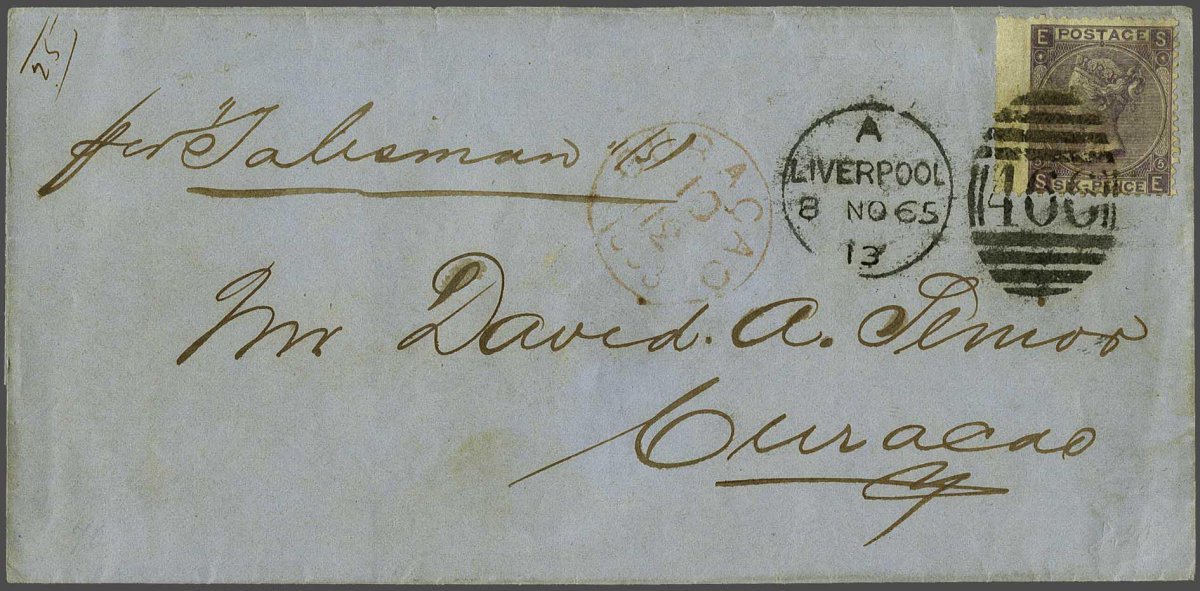 25
per "Talisman"
Mr David. A. Senior
Curacao
A
LIVERPOOL
8 NO 65
13
CURAÇAO
466
E S
POSTAGE
SIX-PENCE
S E
5